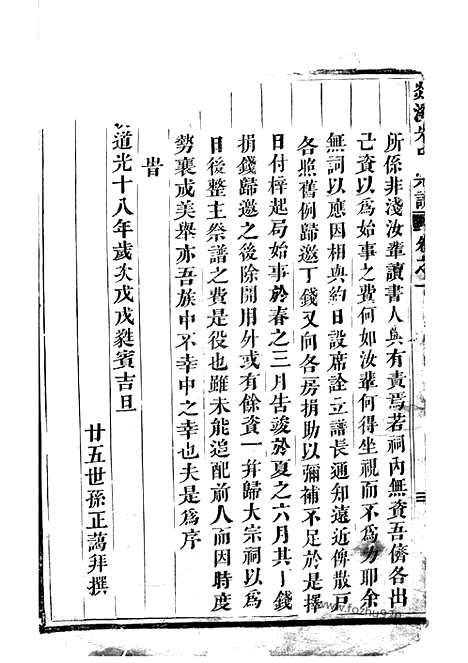 所係非淺汝輩讀書人與有責焉若祠內無資吾儕各出
己資以為始事之費何如汝輩何得坐視而不為力耶余
無詞以應因相與約日設席詮立譜長通知遠近俾散戶
各照舊例歸邀丁錢又向各房捐助以彌補不足於是擇
日付梓起局始事於春之三月告竣於夏之六月其丁錢
捐錢歸邀之後除開用外或有餘資一并歸大宗祠以為
日後整主祭譜之費是役也雖未能追配前人而因時度
勢襄成美舉亦吾族中不幸中之幸也夫是為序
旹
道光十八年歲次戊戌蕤賓吉旦
廿五世孫正謁拜撰
www.fozhu920.com